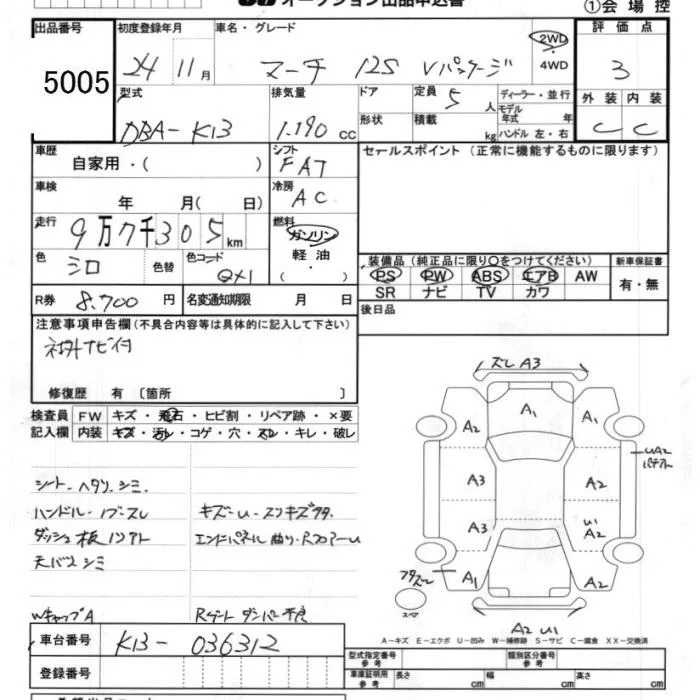 オークション出品申込書
①会場控
出品番号
5005
初度登録年月
24 11月
車名・グレード
マーチ 12S Vパッケージ
2WD
4WD
評価点
3
型式
DBA-K13
排気量
1.190 cc
ドア
形状
定員 5 人
積載 kg
ディーラー・並行
モデル年式 年
ハンドル 左・右
外装 内装
C C
車歴
自家用・( )
シフト
FAT
車検
年 月( 日)
冷房
AC
走行
9万7千305km
燃料
ガソリン
軽油
・
( )
色
シロ
色替
色コード
QX1
R券 8.700 円
名変通知期限 月 日
セールスポイント(正常に機能するものに限ります)
装備品(純正品に限り○をつけてください)
PS PW ABS エアB AW
SR ナビ TV カワ
新車保証書
有・無
後日品
注意事項申告欄(不具合内容等は具体的に記入して下さい)
社外ナビ付
修復歴 有〔箇所 〕
検査員記入欄
FW キズ・飛石・ヒビ割・リペア跡・×要
内装 キズ・汚れ・コゲ・穴・スレ・キレ・破レ
シート・ヘタリ・シミ・
ハンドル・ノブスレ
ダッシュ板ノリアト
天バリシミ
WキャップA
キズ-U-スリキズ多
エンドパネル曲り・RフロアーU
Rゲートダンパー不良
ズレ A3
A2
A1
A1
UA2
A3
A2
A3
U1
A2
フタズレ
A1
A2
スペア
A2 U1
A-キズ E-エクボ U-凹み W-補修跡 S-サビ C-腐食 XX-交換済
車台番号
K13-036312
登録番号
型式指定番号
参考
類別区分番号
参考
車庫証明用
参考
長さ cm
幅 cm
高さ cm